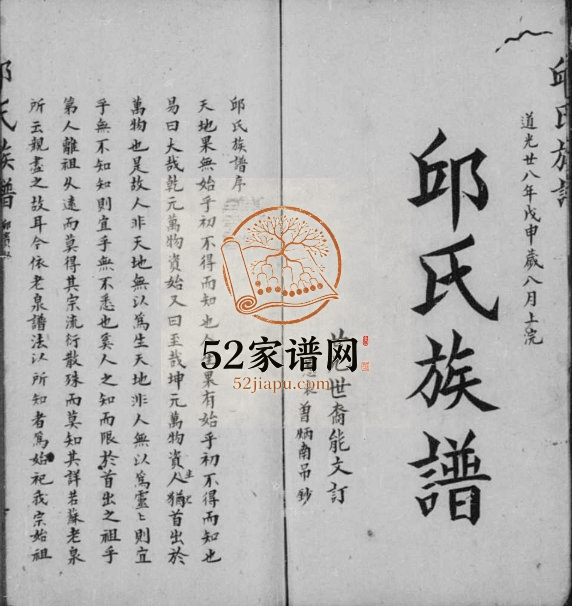 邱氏族譜
道光廿八年戊申歲八月上浣
邱氏族譜
世裔能文訂
曾炳南吊鈔
52家谱网
52jiapu.com
邱氏族譜序
天地果無始乎初不得而知也 果有始乎初不得而知也
易曰大哉乾元萬物資始又曰至哉坤元萬物資生人猶首出於
萬物也是故人非天地無以爲生天地非人無以爲靈〻則宜
乎無不知知則宜乎無不悉也奚人之知而限於首出之祖乎
第人離祖乆遠而莫得其宗流衍散殊而莫知其詳若蘇老泉
所云親盡之故耳今依老泉譜法以所知者爲始祀我宗始祖
邱氏族譜